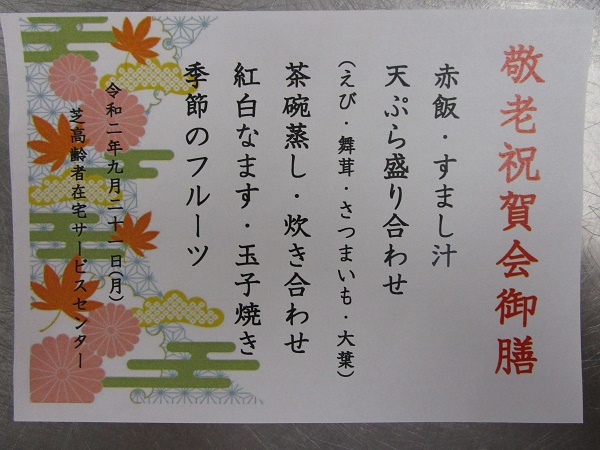 敬老祝賀会御膳
赤飯・すまし汁
天ぷら盛り合わせ
（えび・舞茸・さつまいも・大葉）
茶碗蒸し・炊き合わせ
紅白なます・玉子焼き
季節のフルーツ
令和二年九月二十一日（月）
芝高齢者在宅サービスセンター